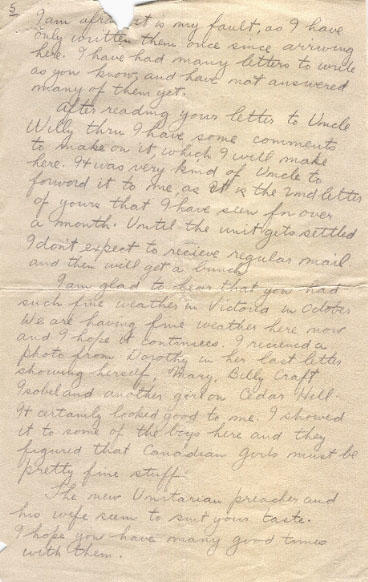 5
I am afraid it is my fault, as I have
only written them once since arriving
here. I have had many letters to write
as you know, and have not answered
many of them yet.
After reading yours letter to Uncle
Willy thru I have some comments
to make on it which I will make
here. It was very kind of Uncle to
forword it to me, as it is the 2nd letter
of yours that I have seen for over
a month. Until the unit gets settled
I don't expect to recieve regular mail
and then will get a bunch.
I am glad to hear that you had
such fine weather in Victoria in October
We are having fine weather here now
and I hope it continues. I recieved a
photo from Dorothy in her last letter
showing herself, Mary, Billy Craft
Isobel and another girl on Cedar Hill.
It certainly looked good to me. I showed
it to some of the boys here and they
figured that Canadian girls must be
pretty fine stuff.
The new Unitarian preacher and
his wife seem to suit your taste.
I hope you have many good times
with them.